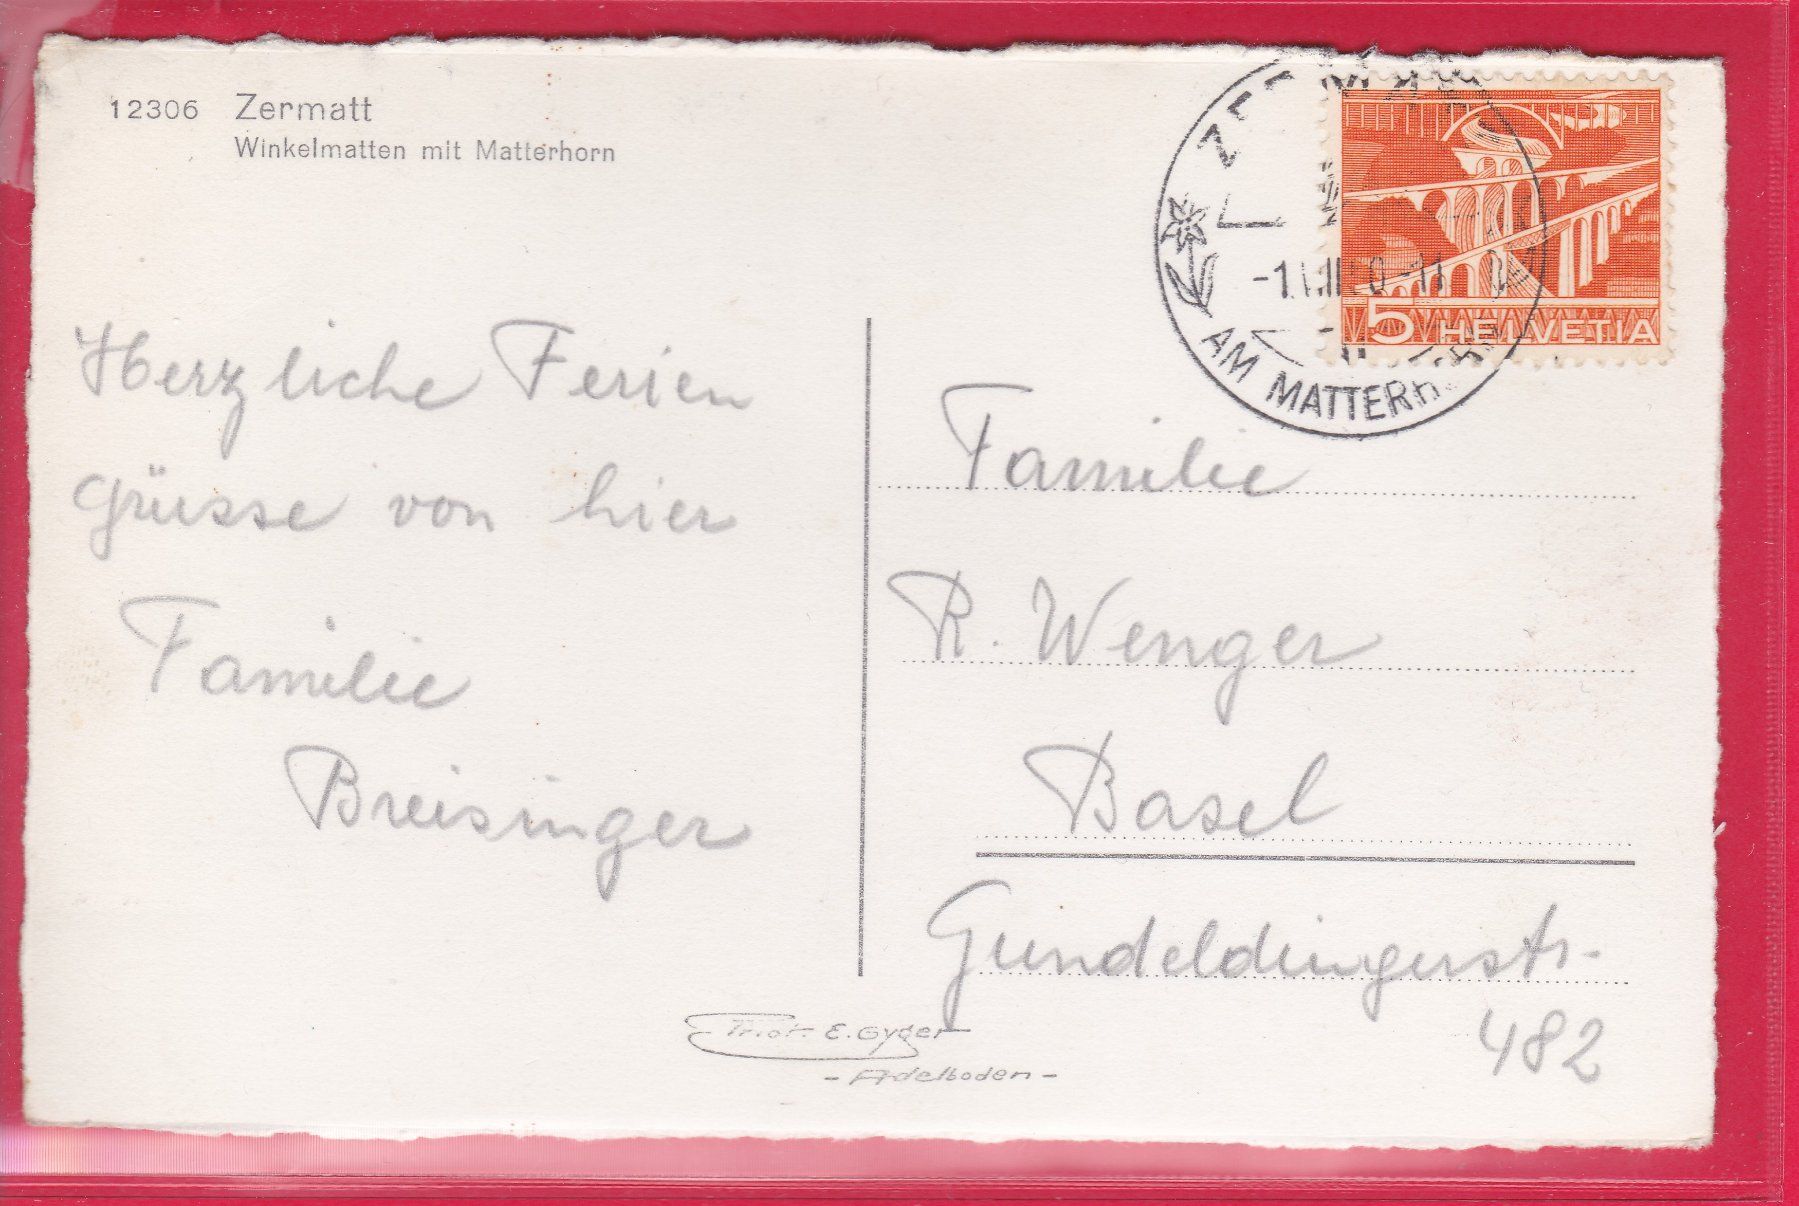 12306 Zermatt
Winkelmatten mit Matterhorn
AM
5 HELVETIA
Herzliche Ferien
Grüsse von hier
Familie
Breisinger
Familie
R. Wenger
Basel
Gundeldingerstr.
482
Phot. E. Gyger
- Adelboden -